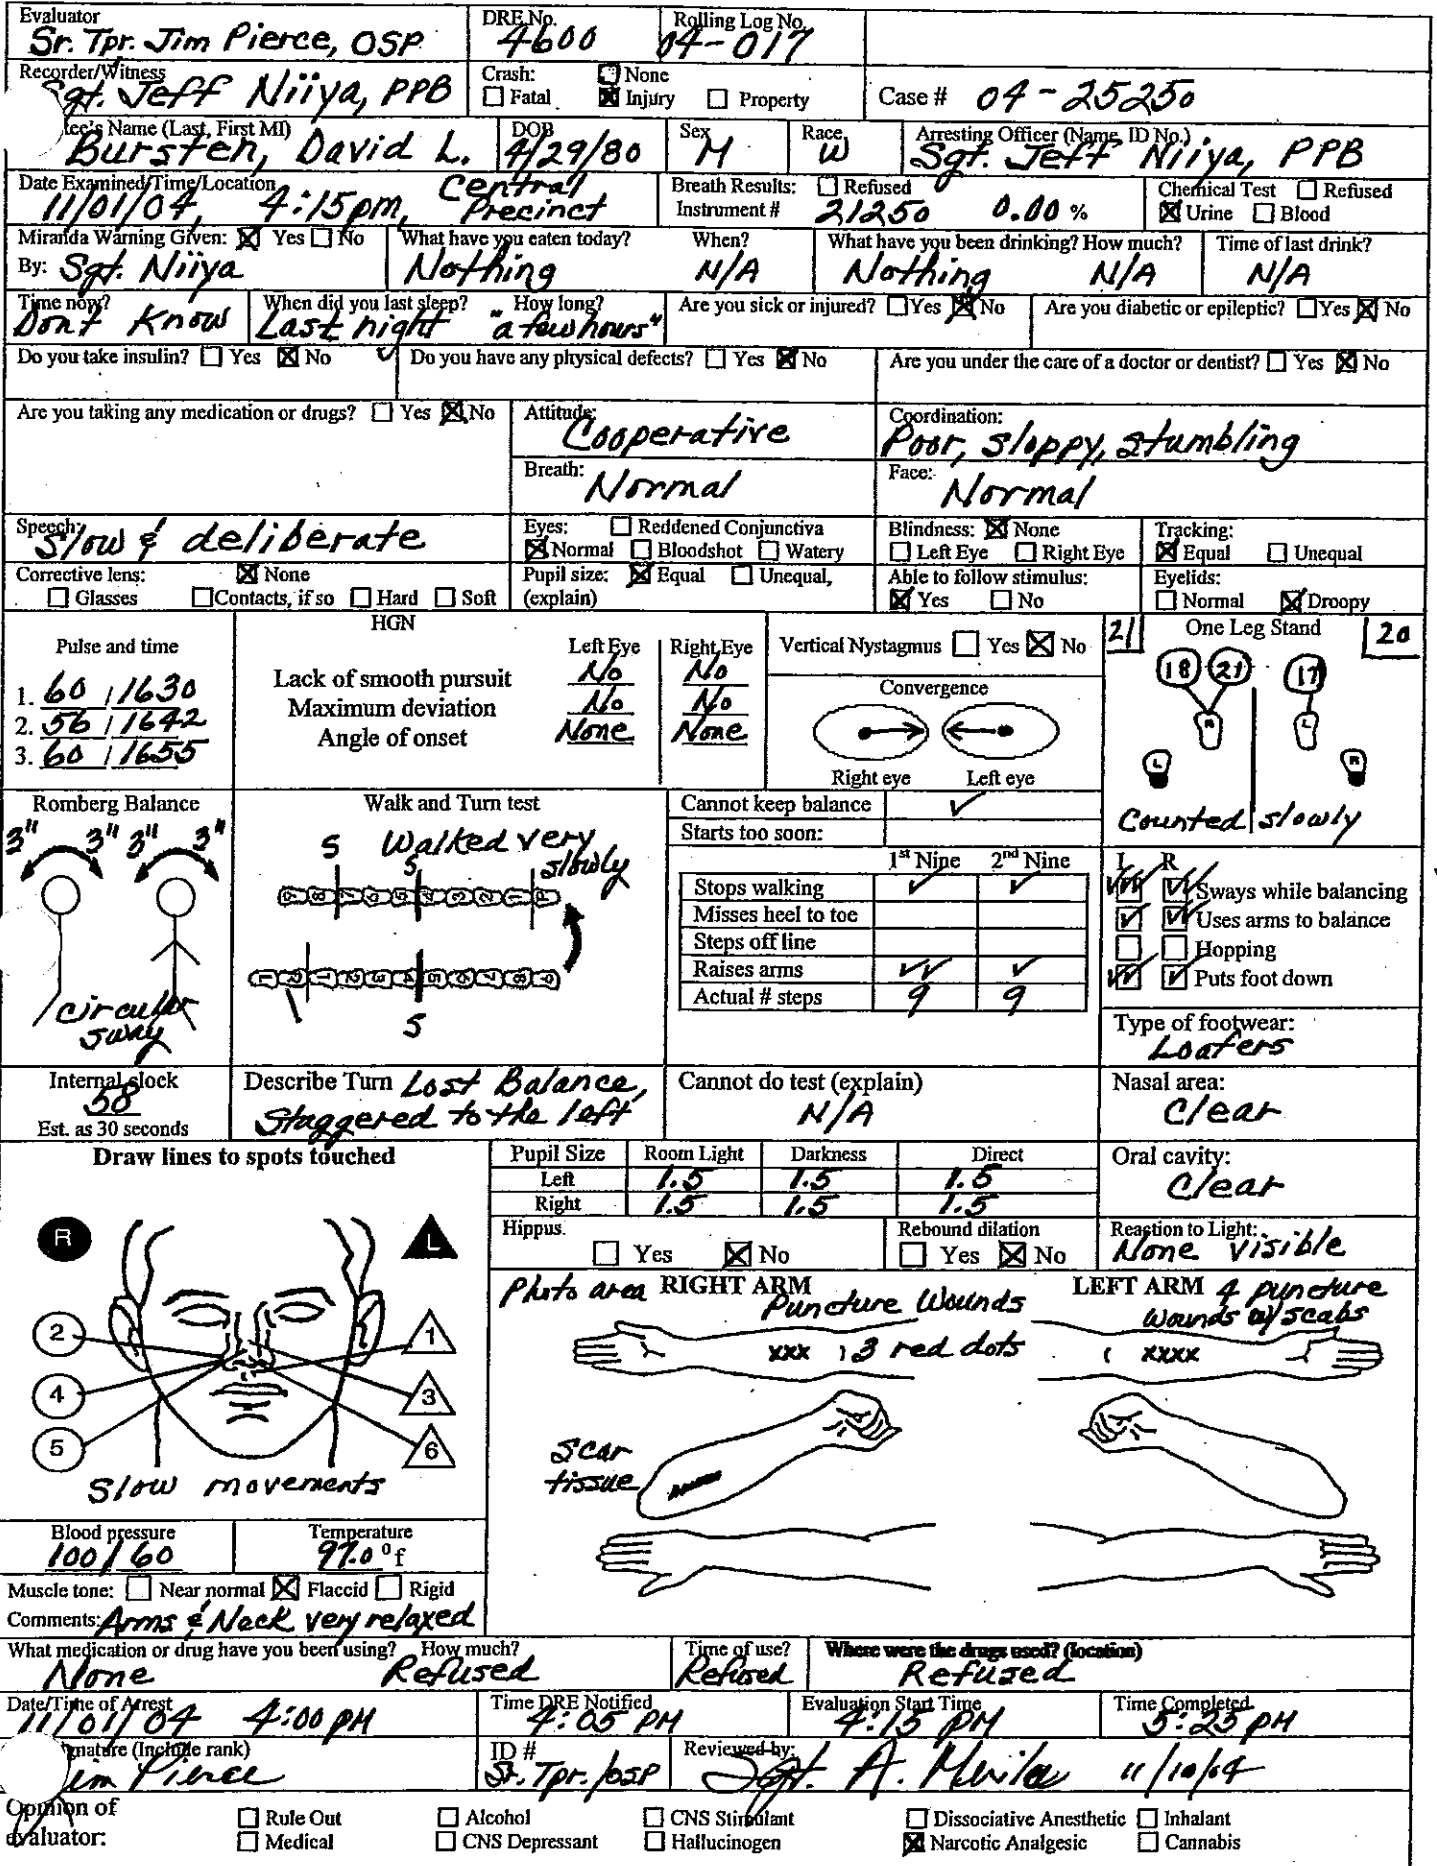 Evaluator
Sr. Tpr. Jim Pierce, OSP
DRE No.
4600
Rolling Log No.
04-017
Recorder/Witness
Sgt. Jeff Niiya, PPB
Crash: None
Fatal Injury Property
Case # 04-25250
tee's Name (Last, First MI)
Bursten, David L.
DOB
4/29/80
Sex
M
Race
W
Arresting Officer (Name, ID No.)
Sgt. Jeff Niiya, PPB
Date Examined/Time/Location
11/01/04, 4:15pm, Central Precinct
Breath Results: Refused
Instrument # 21250 0.00 %
Chemical Test Refused
Urine Blood
Miranda Warning Given: Yes No
By: Sgt. Niiya
What have you eaten today? When?
Nothing N/A
What have you been drinking? How much?
Nothing N/A
Time of last drink?
N/A
Time now?
Dont Know
When did you last sleep? How long?
Last night "a few hours"
Are you sick or injured? Yes No
Are you diabetic or epileptic? Yes No
Do you take insulin? Yes No
Do you have any physical defects? Yes No
Are you under the care of a doctor or dentist? Yes No
Are you taking any medication or drugs? Yes No
Attitude:
Cooperative
Coordination:
Poor, sloppy, stumbling
Breath:
Normal
Face:
Normal
Speech:
Slow & deliberate
Eyes: Reddened Conjunctiva
Normal Bloodshot Watery
Blindness: None
Left Eye Right Eye
Tracking:
Equal Unequal
Corrective lens: None
Glasses Contacts, if so Hard Soft
Pupil size: Equal Unequal,
(explain)
Able to follow stimulus:
Yes No
Eyelids:
Normal Droopy
Pulse and time
1. 60 / 1630
2. 56 / 1642
3. 60 / 1655
HGN
Left Eye Right Eye
Lack of smooth pursuit No No
Maximum deviation No No
Angle of onset None None
Vertical Nystagmus Yes No
Convergence
Right eye Left eye
21 One Leg Stand 20
18 21 17
R L
L R
Counted slowly
Romberg Balance
3" 3" 3" 3"
circular
sway
Walk and Turn test
S Walked very
S slowly
S
Cannot keep balance
Starts too soon:
1st Nine 2nd Nine
Stops walking
Misses heel to toe
Steps off line
Raises arms
Actual # steps 9 9
L R
Sways while balancing
Uses arms to balance
Hopping
Puts foot down
Type of footwear:
Loafers
Internal clock
58
Est. as 30 seconds
Describe Turn Lost Balance,
Staggered to the left
Cannot do test (explain)
N/A
Nasal area:
Clear
Draw lines to spots touched
R L
2 1
4 3
5 6
Slow movements
Pupil Size Room Light Darkness Direct
Left 1.5 1.5 1.5
Right 1.5 1.5 1.5
Oral cavity:
Clear
Hippus.
Yes No
Rebound dilation
Yes No
Reaction to Light:
None visible
Photo area RIGHT ARM
Puncture Wounds
xxx 3 red dots
LEFT ARM 4 puncture
wounds w/scabs
xxxx
Scar
tissue
Blood pressure
100/60
Temperature
97.0 °f
Muscle tone: Near normal Flaccid Rigid
Comments: Arms & Neck very relaxed
What medication or drug have you been using? How much?
None Refused
Time of use?
Refused
Where were the drugs used? (location)
Refused
Date/Time of Arrest
11/01/04 4:00 PM
Time DRE Notified
4:05 PM
Evaluation Start Time
4:15 PM
Time Completed
5:25 PM
nature (Include rank)
Jim Pierce
ID #
Sr. Tpr./OSP
Reviewed by:
Sgt. A. 11/10/04
Opinion of
evaluator:
Rule Out Alcohol CNS Stimulant Dissociative Anesthetic Inhalant
Medical CNS Depressant Hallucinogen Narcotic Analgesic Cannabis